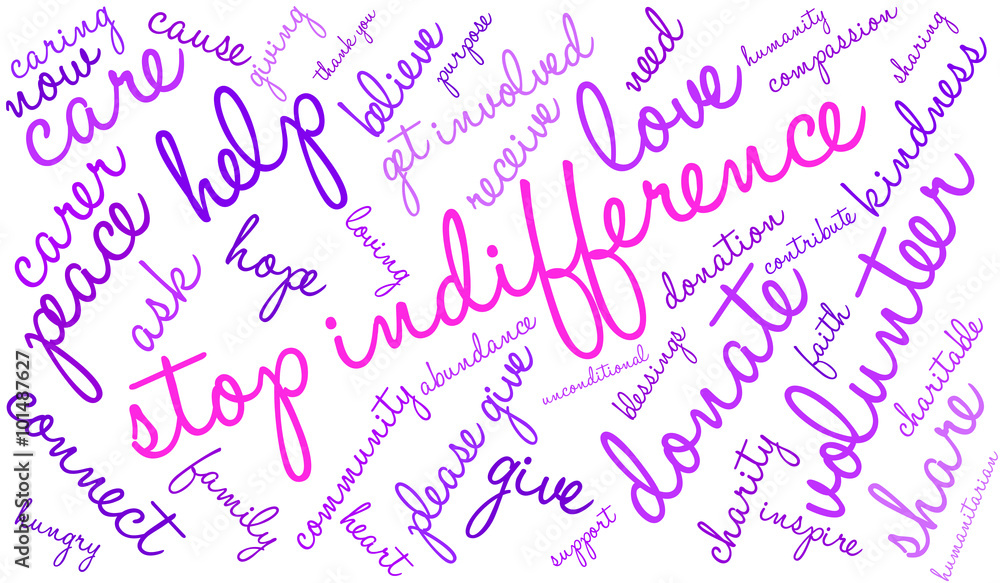 caring
cause
giving
thank you
believe
purpose
need
humanity
compassion
sharing
now
care
help
get involved
receive
love
kindness
carer
peace
hope
loving
stop indifference
donation
contribute
volunteer
ask
abundance
unconditional
blessings
donate
faith
charitable
connect
family
community
please give
give
share
hungry
heart
support
charity
inspire
humanitarian
Adobe Stock | #101487627
Adobe Stock